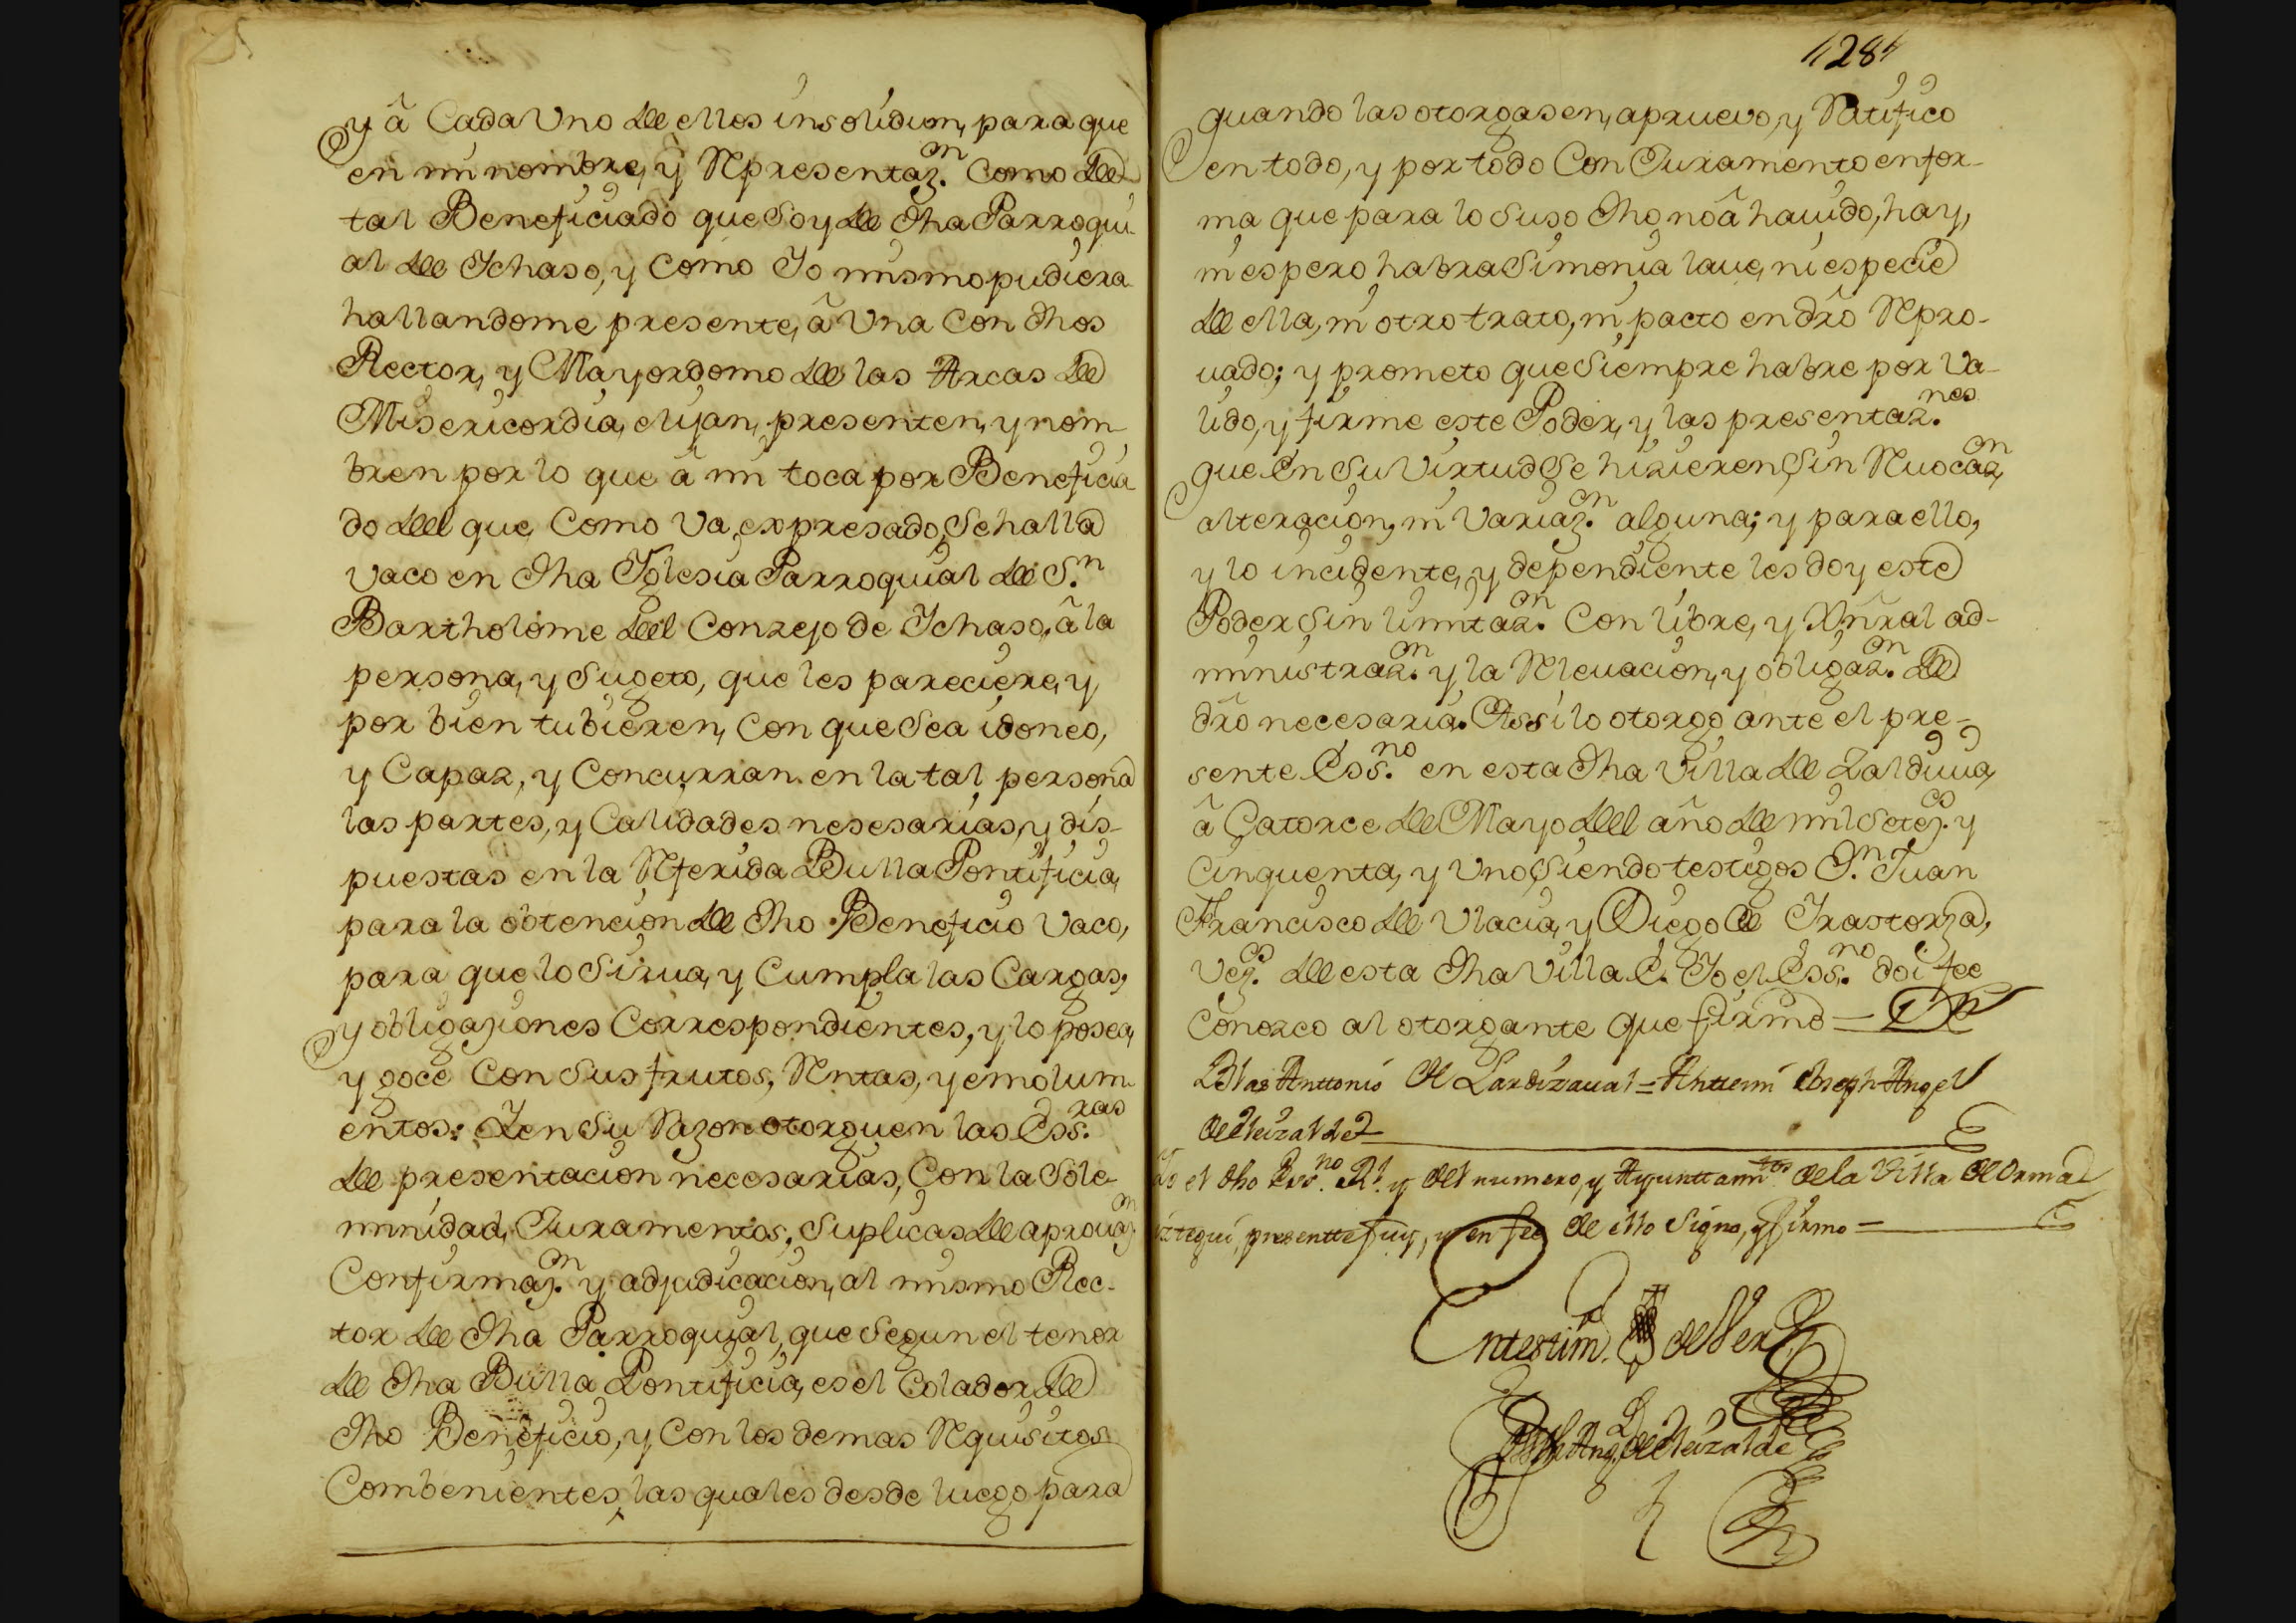 y â Cada Vno de ellos insolidum, para que
en mi nombre, y Representaz.on Como de
tal Beneficiado que Soy de dha Parroqui
al de Ychaso, y Como Yo mismo pudiera
hallandome presente, â Vna Con dhos
Rector, y Mayordomo de las Arcas de
Misericordia, elijan, presenten, y nom
bren por lo que â mi toca por Beneficia
do del que Como Va expresado, Se halla
Vaco en dha Yglesia Parroquial de S.n
Bartholome del Conzejo de Ychaso, â la
persona, y Sugeto, que les pareciere, y
por bien tubieren, Con que Sea idoneo,
y Capaz, y Concurran en la tal persona
las partes, y Calidades nesesarias, y dis-
puestas en la Referida Bulla Pontificia,
para la obtencion de dho Beneficio Vaco,
para que lo Sirua, y Cumpla las Cargas,
y obligaziones Correspondientes, y lo posea,
y goce Con Sus frutos, Rentas, y emolum
entos: Y en Su Razon otorguen las Ess.ras
de presentacion necesarias, Con la Sole-
mnidad, Juramentos, Suplicas de aprouaz.on
Confirmaz.on y adjudicacion, al mismo Rec-
tor de dha Parroquial, que Segun el tenor
de dha Bulla Pontificia, es el Colador de
dho Beneficio, y Con los demas Requisitos
Combenientes, las quales desde luego para
128
quando las otorgasen, apruevo, y Ratifico
en todo, y por todo Con Juramento en for-
ma que para lo Suso dho no â hauido, hay,
ni espero habra Simonia laue, ni especie
de ella, ni otro trato, ni pacto en dro Repro-
uado; y prometo que Siempre habre por Va-
lido, y firme este Poder, y las presentaz.nes
que En Su Virtud Se hizieren Sin Reuocaz.on
alteracion, ni Variaz.on alguna; y para ello,
y lo incidente, y dependiente les doy este
Poder Sin limitaz.on Con libre, y Xñral ad-
ministraz.on y la Releuacion, y obligaz.on de
dro necesaria. Assi lo otorgo ante el pre-
sente Ess.no en esta dha Villa de Zaldiuia,
â Catorce de Mayo del año de mil Setez.os y
Cinquenta, y Vno Siendo testigos D.n Juan
Francisco de Vlacia, y Diego de Yrastorza,
Vez.os de esta dha Villa E. Yo el Ess.no doi fee
Conozco al otorgante que firmo =
Blas Anttonio de Lardizaual = Anttemi Joseph Angel
de Eleizalde
Yo el dho Ess.no Rl. y del numero, y Ayunttamto de la Villa de Orma
iztegui, presentte fuy, y en fee de ello Signo, y firmo =
En testim.o de Verd
Joseph Ang.l de Eleizalde